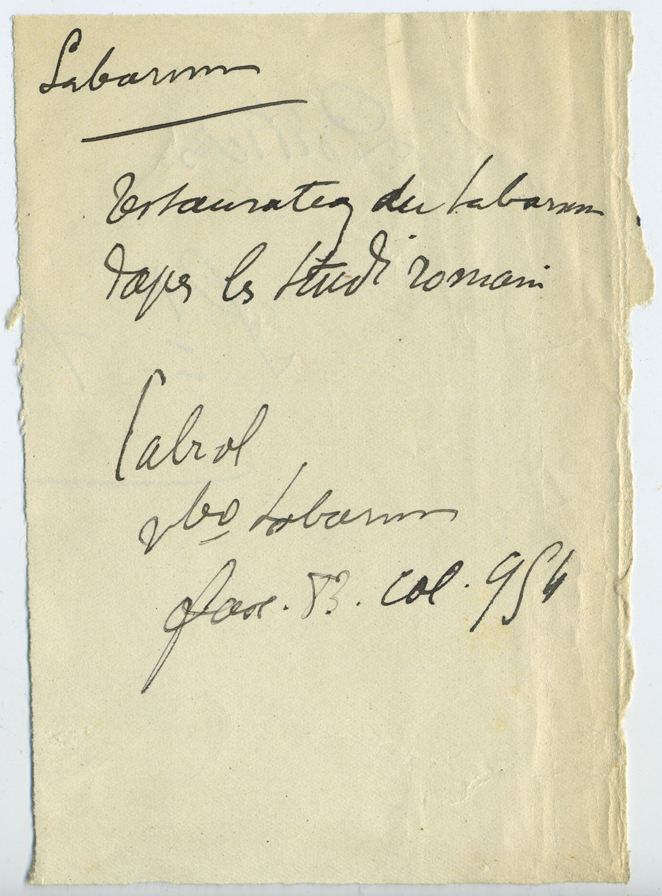 Labarum
Restauration du Labarum
d'après les Studi romani
Cabrol
vbo Labarum
fasc. 83. col. 954